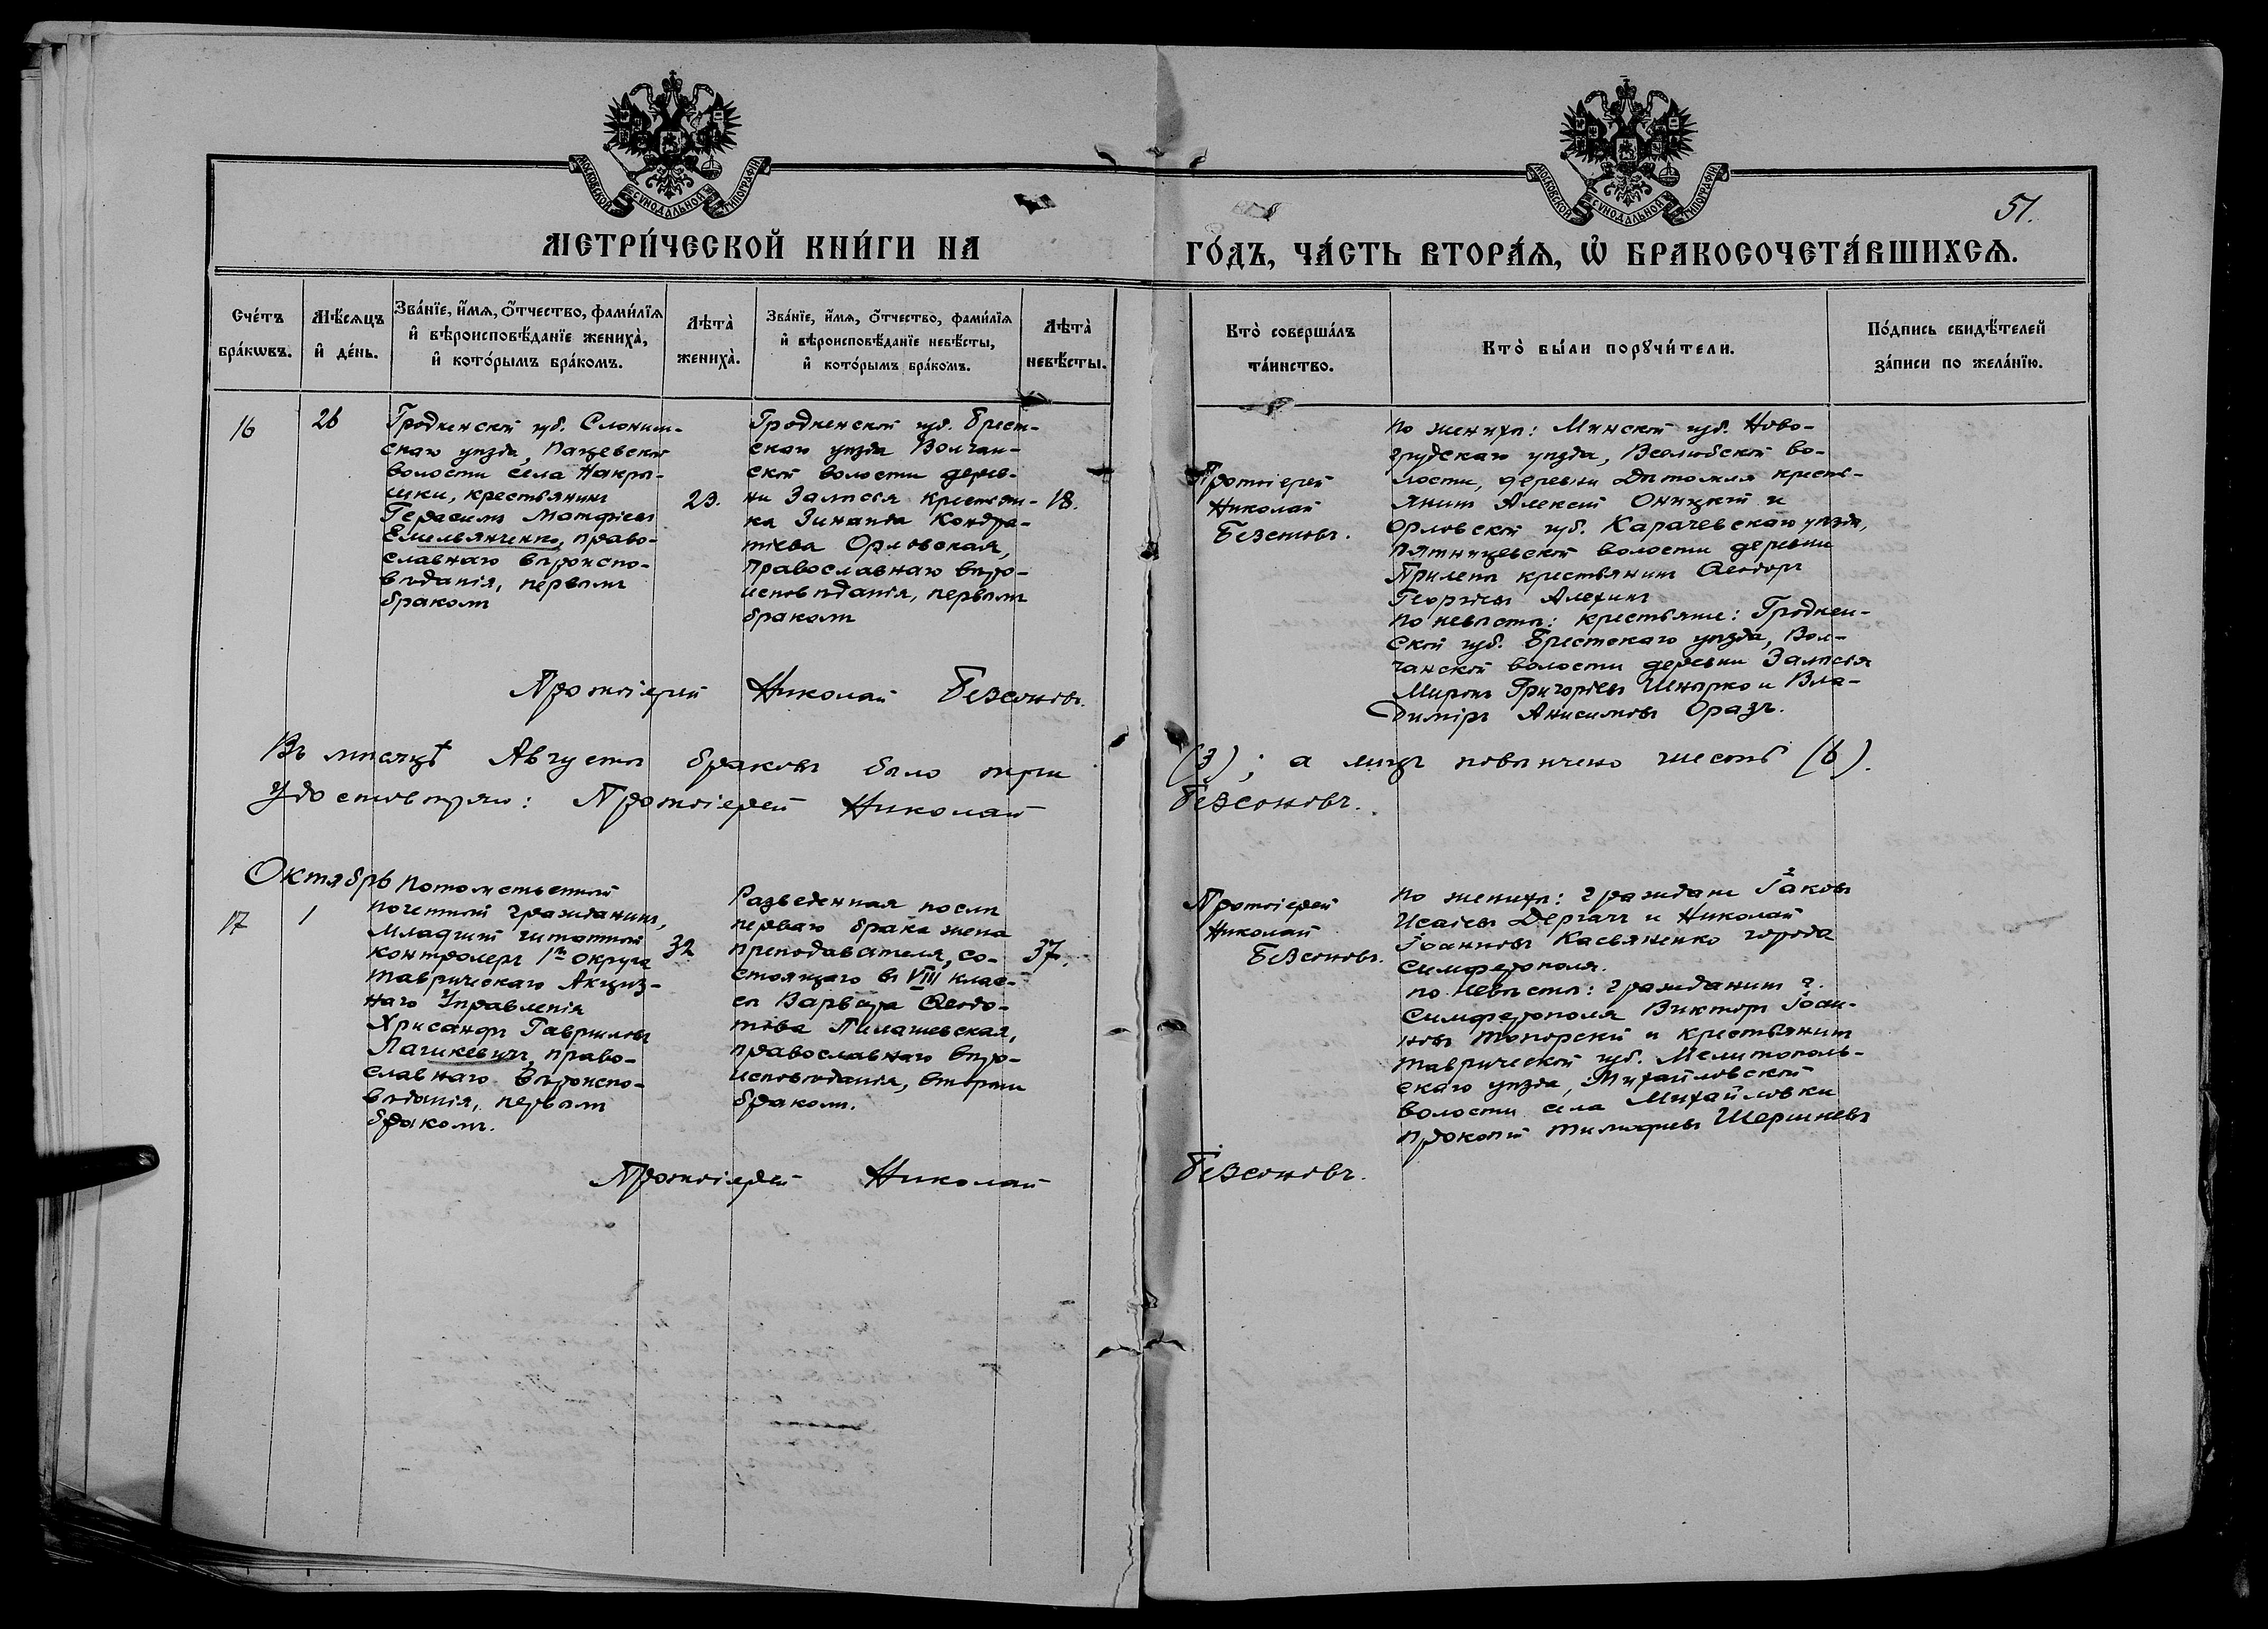 МОСКОВСКОЙ СѴНОДАЛЬНОЙ ТИПОГРАФІИ
МОСКОВСКОЙ СѴНОДАЛЬНОЙ ТИПОГРАФІИ
51.
МЕТРИ́ЧЕСКОЙ КНИ́ГИ НА
ГО́ДЪ, ЧА́СТЬ ВТОРА́Ѧ, Ѽ БРАКОСОЧЕТА́ВШИХСѦ.
Сче́тъ
бра́кѡвъ.
Мѣ́сѧцъ
и҆ де́нь.
Зва́нїе, и҆́мѧ, ѻ҆́тчество, фами́лїѧ
и҆ вѣроисповѣ́данїе жениха̀,
и҆ кото́рымъ бра́комъ.
Лѣта̀
жениха̀.
Зва́нїе, и҆́мѧ, ѻ҆́тчество, фами́лїѧ
и҆ вѣроисповѣ́данїе невѣ́сты,
и҆ кото́рымъ бра́комъ.
Лѣта̀
невѣ́сты.
Кто̀ соверша́лъ
та́инство.
Кто̀ бы́ли порꙋчи́тели.
По́дпись свидѣ́телей
за́писи по жела́нїю.
16
26
Гродненской губ. Слоним-
скаго уѣзда, Пацевской
волости села Накры-
шки, крестьянинъ
Герасимъ Матфіевъ
Емельянченко, право-
славнаго вѣроиспо-
вѣданія, первымъ
бракомъ
23.
Гродненской губ. Брест-
скаго уѣзда Волчин-
ской волости дерев-
ни Залѣсья крестьян-
ка Зинаида Кондра-
тіева Орловская,
православнаго вѣро-
исповѣданія, первымъ
бракомъ
18.
Протоіерей
Николай
Безсоновъ.
По женихѣ: Минской губ. Ново-
грудскаго уѣзда, Вселюбской во-
лости, деревни Дятомля кресть-
янинъ Алексій Оницкій и
Орловской губ. Карачевскаго уѣзда,
Пятницкой волости деревни
Прилепъ крестьянинъ Ѳеодоръ
Георгіевъ Алехинъ
По невѣстѣ: крестьяне: Гроднен-
ской губ. Брестскаго уѣзда, Вол-
чанской волости деревни Залѣсья
Миронъ Григоріевъ Шнарко и Вла-
диміръ Анисимовъ Оразъ.
Протоіерей Николай Безсоновъ.
Въ мѣсяцѣ Августѣ браковъ было три (3); а лицъ повѣнчено шесть (6).
Удостовѣряю: Протоіерей Николай Безсоновъ.
Октябрь
17
1
Потомственный
почетный гражданинъ,
младшій штатный
контролеръ 1го округа
Таврическаго Акциз-
наго Управленія
Хрисанфъ Гавриловъ
Пашкевичъ, право-
славнаго вѣроиспо-
вѣданія, первымъ
бракомъ.
32
Разведенная послѣ
перваго брака жена
преподавателя, со-
стоящаго въ VIII клас-
сѣ Варвара Ѳеодо-
това Пилашевская,
православнаго вѣро-
исповѣданія, вторымъ
бракомъ.
37.
Протоіерей
Николай
Безсоновъ.
По женихѣ: граждане Іаковъ
Исаіевъ Дергачъ и Николай
Іоанновъ Касьяненко города
Симферополя.
по невѣстѣ: гражданинъ г.
Симферополя Викторъ Іоан-
новъ Топорскій и крестьянинъ
Таврической губ. Мелитополь-
скаго уѣзда, Михайловской
волости села Михайловки
Прокопій Тимофеевъ Шершневъ
Протоіерей Николай Безсоновъ.